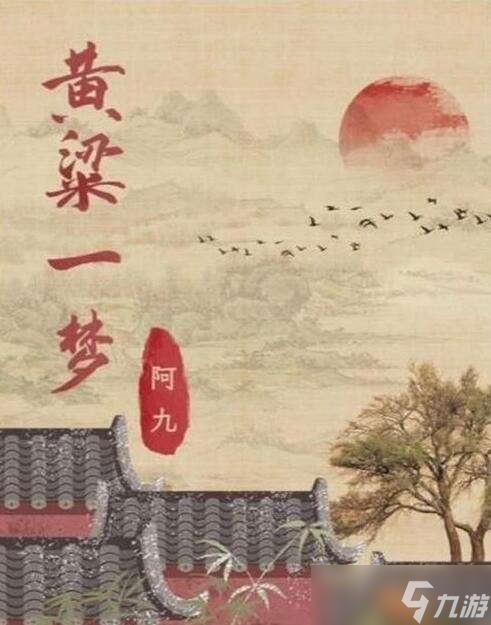 黄粱一梦
阿九
九游